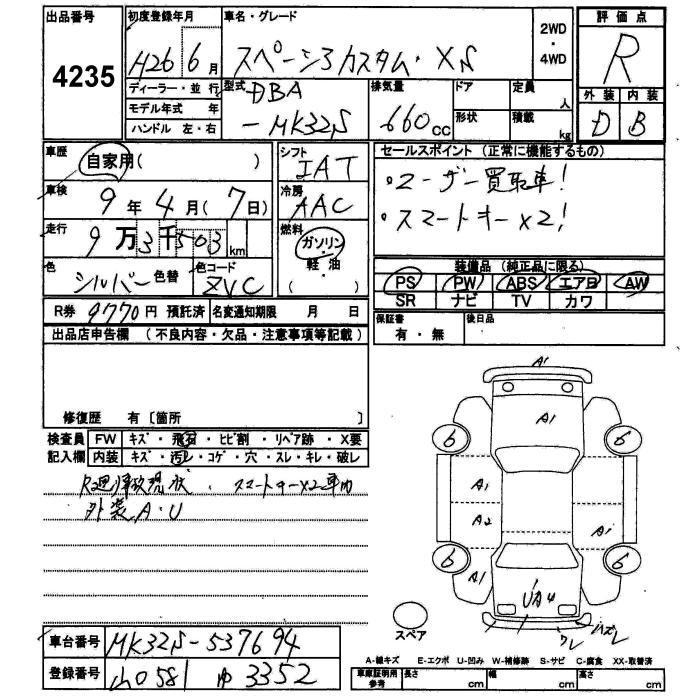 出品番号
4235
初度登録年月
H26 6月
車名・グレード
スペーシアカスタム・XS
2WD
・
4WD
評価点
R
外装 内装
D B
ディーラー・並行
モデル年式 年
ハンドル 左・右
型式
DBA
-MK32S
排気量
660cc
ドア
形状
定員
人
積載
kg
車歴
自家用( )
車検
9年4月(7日)
走行
9万3千503km
色
シルバー 色替
色コード
ZVC
シフト
IAT
冷房
AAC
燃料
ガソリン・
軽・油
( )
セールスポイント (正常に機能するもの)
・ユーザー買取車!
・スマートキーx2!
装備品 (純正品に限る)
PS PW ABS エアB AW
SR ナビ TV カワ
R券 9770円 預託済 名変通知期限 月 日
保証書
有・無
後日品
出品店申告欄 (不良内容・欠品・注意事項等記載)
修復歴 有〔箇所 〕
検査員 FW キズ・飛石・ヒビ割・リペア跡・X要
記入欄 内装 キズ・汚レ・コゲ・穴・スレ・キレ・破レ
R廻り事故現状. スマートキーx2車内
外装A・U
A1
A1
6
6
A1
A2
A1
6
6
A1
UA4
ワレ
ハズレ
スペア
車台番号 MK32S-537694
登録番号
581 中 3352
A-線キズ E-エクボ U-凹み W-補修跡 S-サビ C-腐食 XX-取替済
車庫証明用
参考
長さ cm
幅 cm
高さ cm